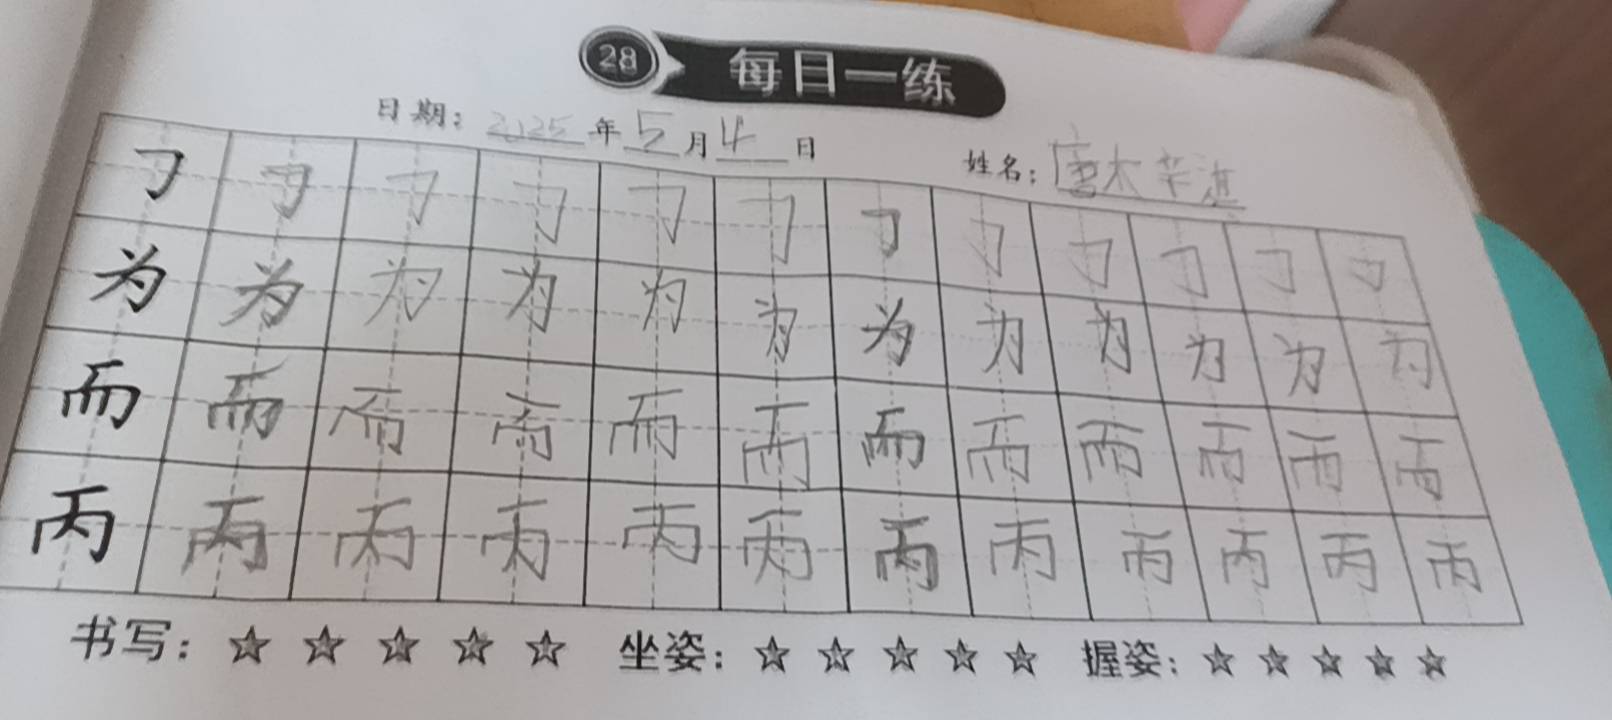 28 每日一练
日期：2025年5月4日 姓名：唐木芊淇
㇆ ㇆ ㇆ ㇆ ㇆ ㇆ ㇆ ㇆ ㇆ ㇆ ㇆ ㇆
为 为 为 为 为 为 为 为 为 为 为 为
而 而 而 而 而 而 而 而 而 而 而 而
丙 丙 丙 丙 丙 丙 丙 丙 丙 丙 丙 丙
书写：☆ ☆ ☆ ☆ ☆ 坐姿：☆ ☆ ☆ ☆ ☆ 握姿：☆ ☆ ☆ ☆ ☆